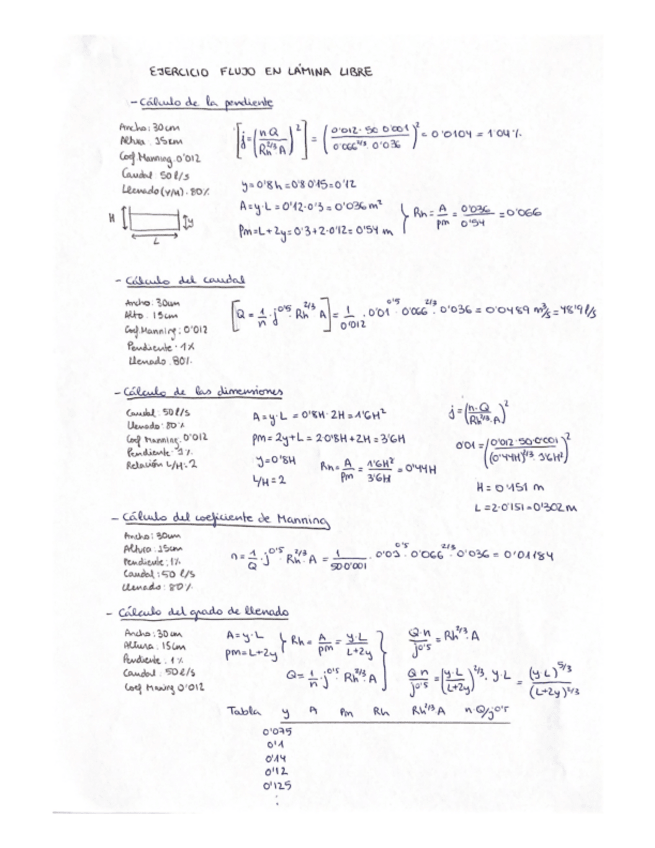 EJERCICIO FLUJO EN LÁMINA LIBRE
- Cálculo de la pendiente
Ancho: 30 cm
Altura: 15cm
Coef Manning: 0'012
Caudal 50 l/s
Llenado (Y/H): 80%
H y L
[j = (nQ / Rh^2/3 A)^2] = (0'012 · 50 · 0'001 / 0'066^2/3 · 0'036)^2 = 0'0104 = 1'04%
y = 0'8h = 0'8·0'15 = 0'12
A = y·L = 0'12·0'3 = 0'036 m²
Pm = L + 2y = 0'3 + 2·0'12 = 0'54 m
Rh = A / Pm = 0'036 / 0'54 = 0'066
- Cálculo del caudal
Ancho: 30cm
Alto: 15cm
Coef Manning: 0'012
Pendiente: 1%
Llenado: 80%
[Q = 1/n · j^0'5 · Rh^2/3 · A] = 1/0'012 · 0'01^0'5 · 0'066^2/3 · 0'036 = 0'0489 m³/s = 48'9 l/s
- Cálculo de las dimensiones
Caudal: 50 l/s
Llenado: 80%
Coef Manning: 0'012
Pendiente: 1%
Relación L/H: 2
A = y·L = 0'8H · 2H = 1'6H²
Pm = 2y + L = 2·0'8H + 2H = 3'6H
y = 0'8H
L/H = 2
Rh = A / Pm = 1'6H² / 3'6H = 0'44H
j = (n·Q / Rh^2/3 · A)^2
0'01 = (0'012 · 50 · 0'001 / (0'44H)^2/3 · 3'6H²)^2
H = 0'151 m
L = 2·0'151 = 0'302 m
- Cálculo del coeficiente de Manning
Ancho: 30cm
Altura: 15cm
Pendiente: 1%
Caudal: 50 l/s
Llenado: 80%
n = 1/Q · j^0'5 · Rh^2/3 · A = 1 / 50·0'001 · 0'01^0'5 · 0'066^2/3 · 0'036 = 0'01184
- Cálculo del grado de llenado
Ancho: 30 cm
Altura: 15 cm
Pendiente: 1%
Caudal: 50 l/s
Coef Manning 0'012
A = y·L
Pm = L + 2y
Rh = A / Pm = y·L / L+2y
Q = 1/n · j^0'5 · Rh^2/3 · A
Q·n / j^0'5 = Rh^2/3 · A
Q·n / j^0'5 = (y·L / L+2y)^2/3 · y·L = (y·L)^5/3 / (L+2y)^2/3
Tabla y A Pm Rh Rh^2/3 A n·Q/j^0'5
0'075
0'1
0'14
0'12
0'125
⋮